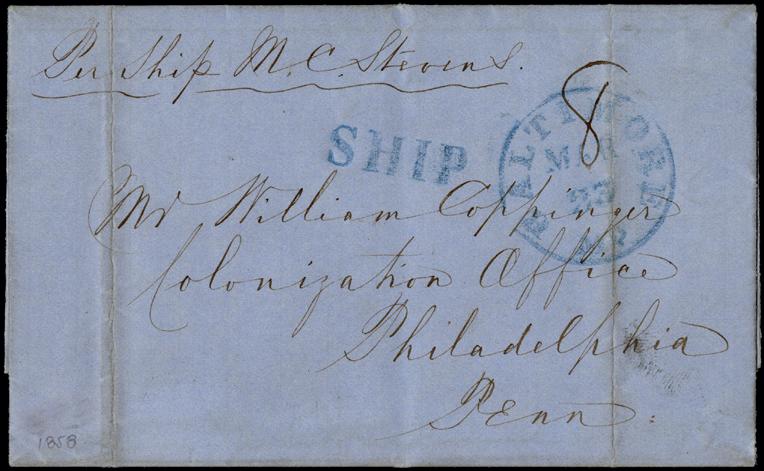 Per Ship M. C. Stevens.
8
SHIP
BALTIMORE
MAR
23
Md
Mr William Coppinger
Colonization Office
Philadelphia
Penn.
1858